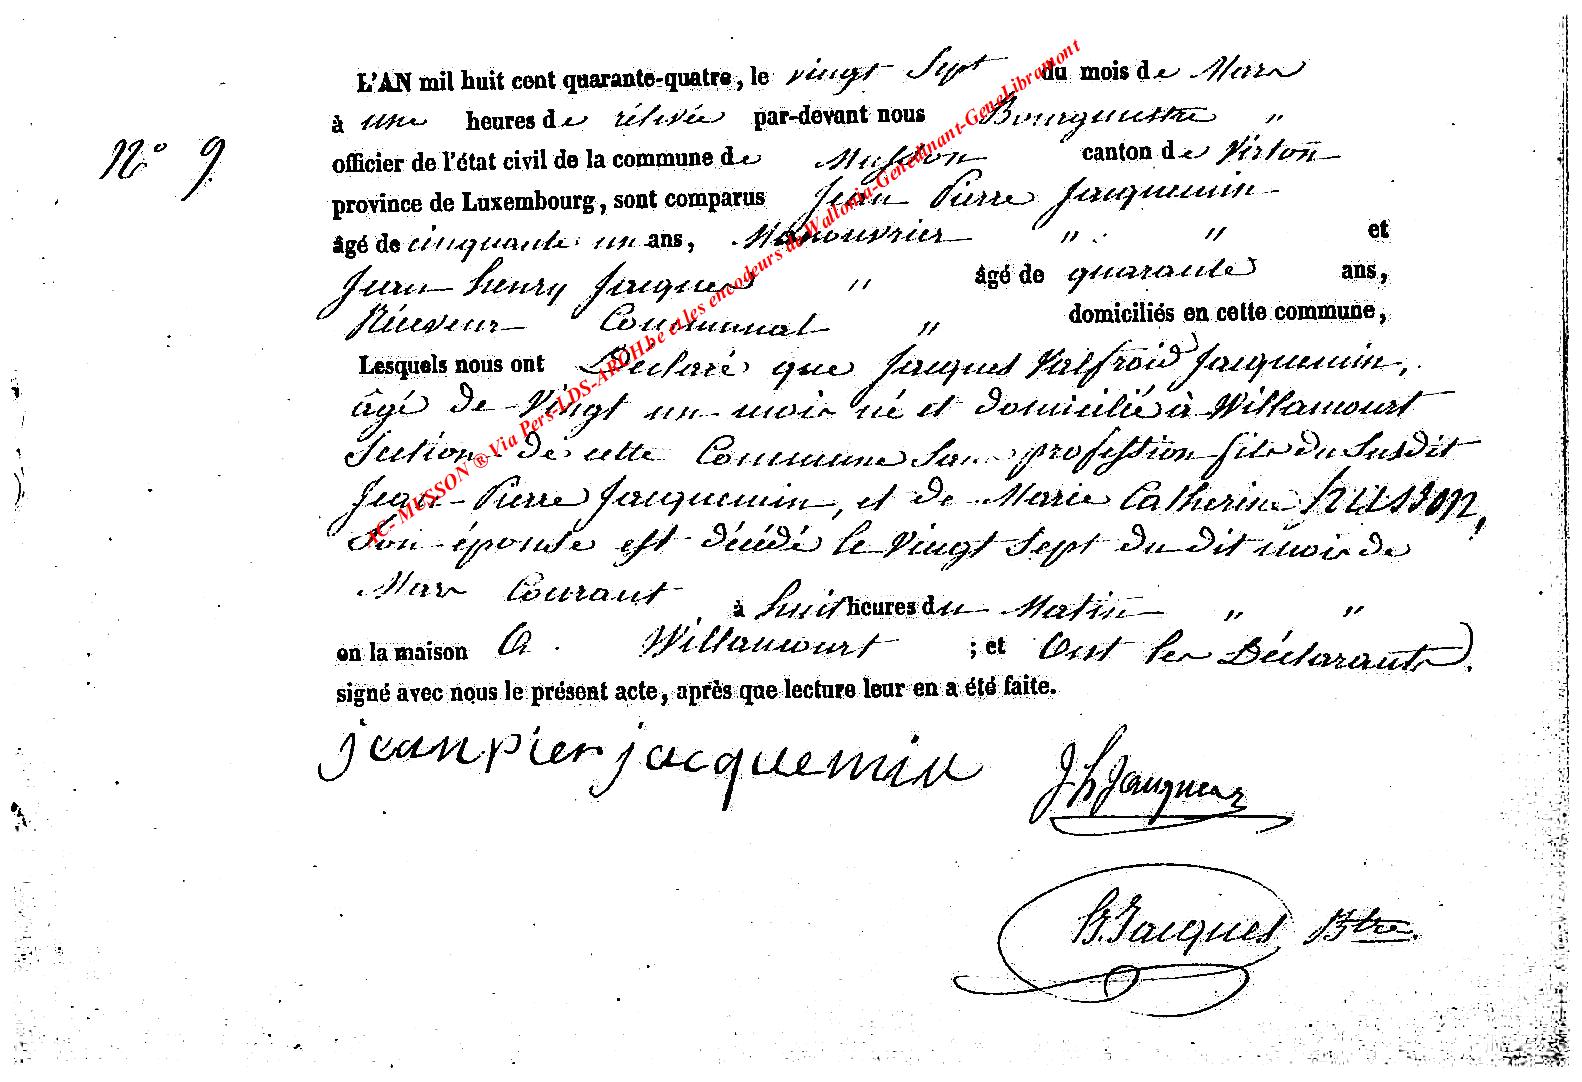 L'AN mil huit cent quarante-quatre, le vingt Sept du mois de Mars
à une heures de rélevée par-devant nous Bourguestre "
N° 9
officier de l'état civil de la commune de Musson canton de Virton
province de Luxembourg, sont comparus Jean Pierre Jacquemin
âgé de cinquante un ans, Manouvrier " " et
Jean henry Jacques " âgé de quarante ans,
Réceveur Communal " domiciliés en cette commune,
Lesquels nous ont Déclaré que Jacques Valfroid Jacquemin,
âgé de Vingt un mois né et domicilié à Willancourt
Section de cette Commune San profession fils du Susdit
Jean Pierre Jacquemin, et de Marie Catherine husson,
Son épouse est décédé le Vingt Sept du dit mois de
Mars Courant à huit heures du Matin " "
en la maison A Willancourt ; et Ont les Déclarants
signé avec nous le présent acte, après que lecture leur en a été faite.
jean pier jacquemin
J h Jacques
h. Jacques Btre.
JC-MUSSON ® Via Pers-LDS-ARCH.be et les encodeurs de Wallonia-Genedinant-GeneLibramont